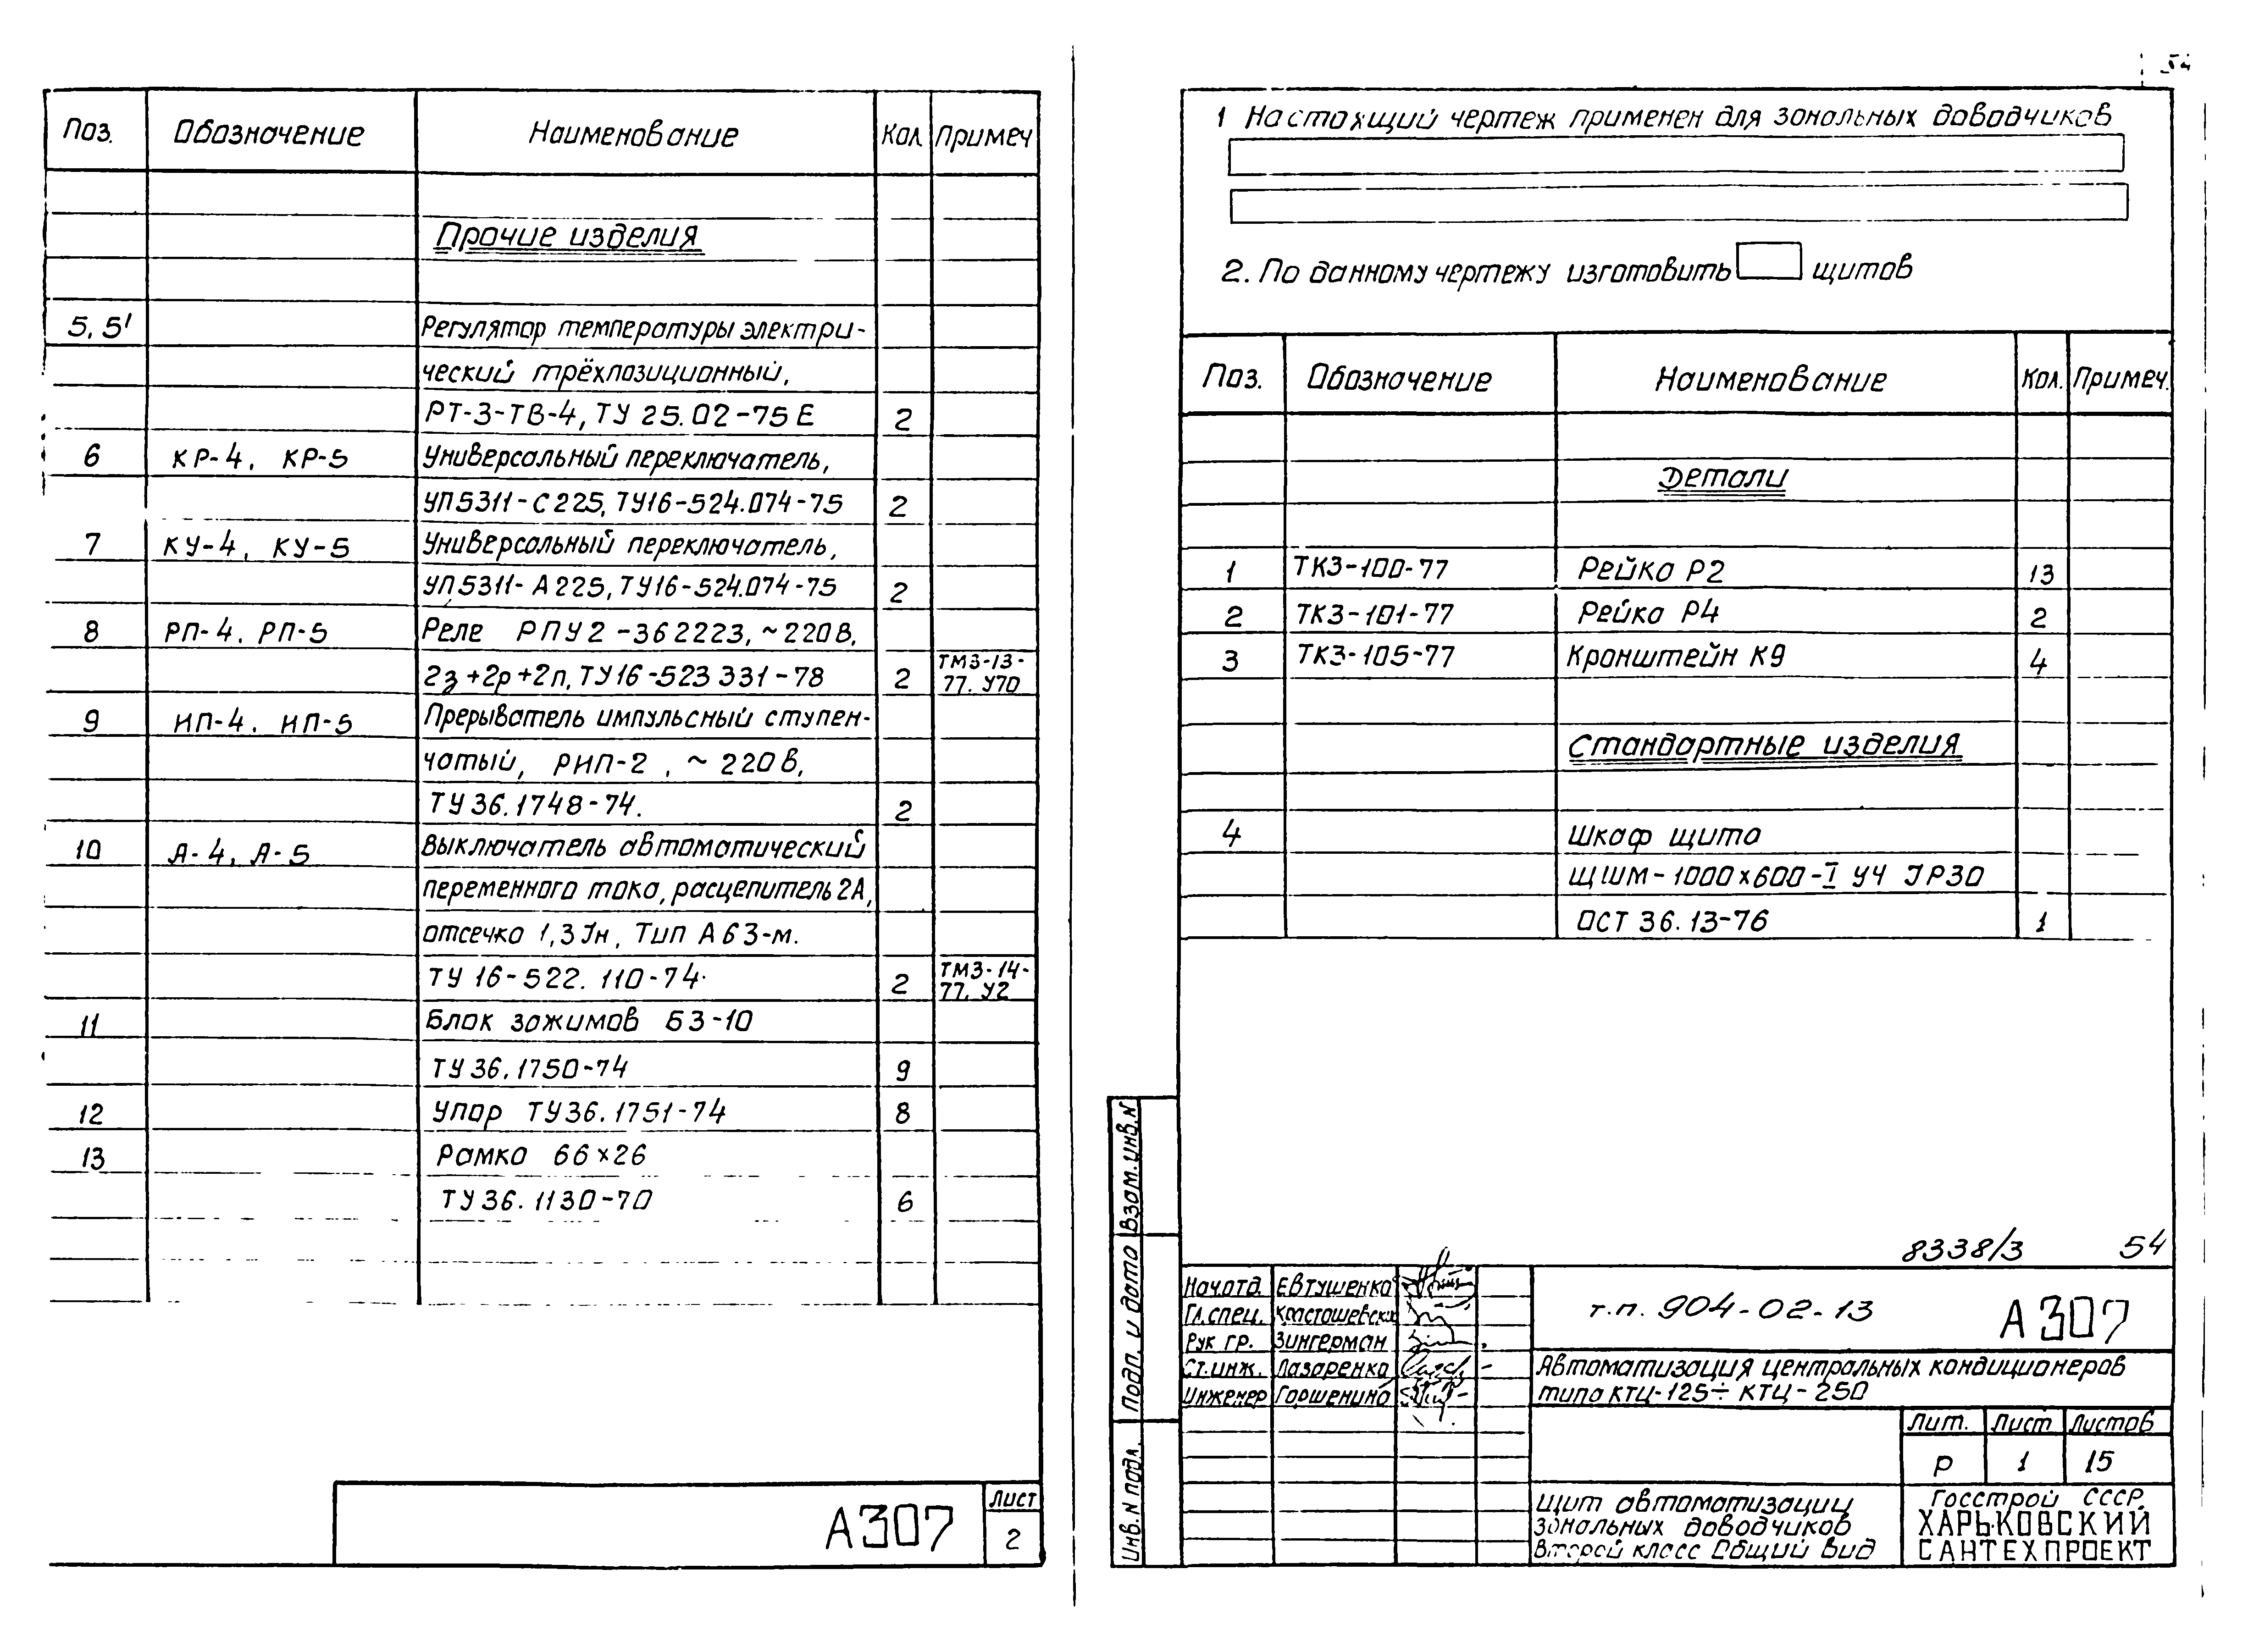 Поз. Обозначение Наименование Кол. Примеч
Прочие изделия
5, 5' Регулятор температуры электри-
ческий трёхпозиционный,
РТ-3-ТВ-4, ТУ 25.02-75Е 2
6 КР-4, КР-5 Универсальный переключатель,
УП5311-С225, ТУ16-524.074-75 2
7 КУ-4, КУ-5 Универсальный переключатель,
УП5311-А225, ТУ16-524.074-75 2
8 РП-4. РП-5 Реле РПУ2-362223, ~220в,
2з+2р+2п, ТУ16-523 331-78 2 ТМ3-13-
77. У70
9 ИП-4. ИП-5 Прерыватель импульсный ступен-
чатый, РИП-2, ~220в,
ТУ36.1748-74. 2
10 А-4, А-5 Выключатель автоматический
переменного тока, расцепитель 2А,
отсечка 1,3Jн, Тип А63-м.
ТУ 16-522. 110-74. 2 ТМ3-14-
77. У2
11 Блок зажимов БЗ-10
ТУ36.1750-74 9
12 Упор ТУ36.1751-74 8
13 Рамка 66×26
ТУ36.1130-70 6
А307
Лист
2
54
1 Настоящий чертеж применен для зональных доводчиков
2. По данному чертежу изготовить щитов
Поз. Обозначение Наименование Кол. Примеч.
Детали
1 ТК3-100-77 Рейка Р2 13
2 ТК3-101-77 Рейка Р4 2
3 ТК3-105-77 Кронштейн К9 4
Стандартные изделия
4 Шкаф щита
ЩШМ-1000×600-I У4 JP30
ОСТ 36.13-76 1
8338/3 54
Взам.инв.N
Подп. и дата
Инв.N подл.
Нач.отд. Евтушенко
Гл.спец.
Рук гр. Зингерман
Ст.инж. Лазаренко
Инженер
т.п. 904-02-13 А307
Автоматизация центральных кондиционеров
типа КТЦ-125÷КТЦ-250
Лит. Лист Листов
Р 1 15
Щит автоматизации
зональных доводчиков
Второй класс Общий вид
Госстрой СССР
ХАРЬКОВСКИЙ
САНТЕХПРОЕКТ